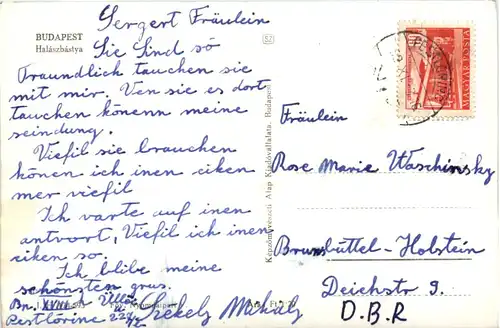 BUDAPEST
Halászbástya
Sergert Fräulein
Sie sind sö
fraundlich tauchen sie
mit mir. Ven sie es dort
tauchen könenn meine
seindung.
Viefil sie brauchen
könen ich inen ciken
mer viefil
Ich varte auf inen
antvort, Viefil ich inen
ciken so.
Ich blibe meine
schönsten grus.
Bp. XVIII Üllői
Pestlőrinc
Székely Mihály
Képzőművészeti Alap Kiadóvállalata, Budapest
MAGYAR POSTA
Fräulein
Rose Marie Waschinsky
Brunsbüttel-Holstein
Deichstr 9.
D.B.R